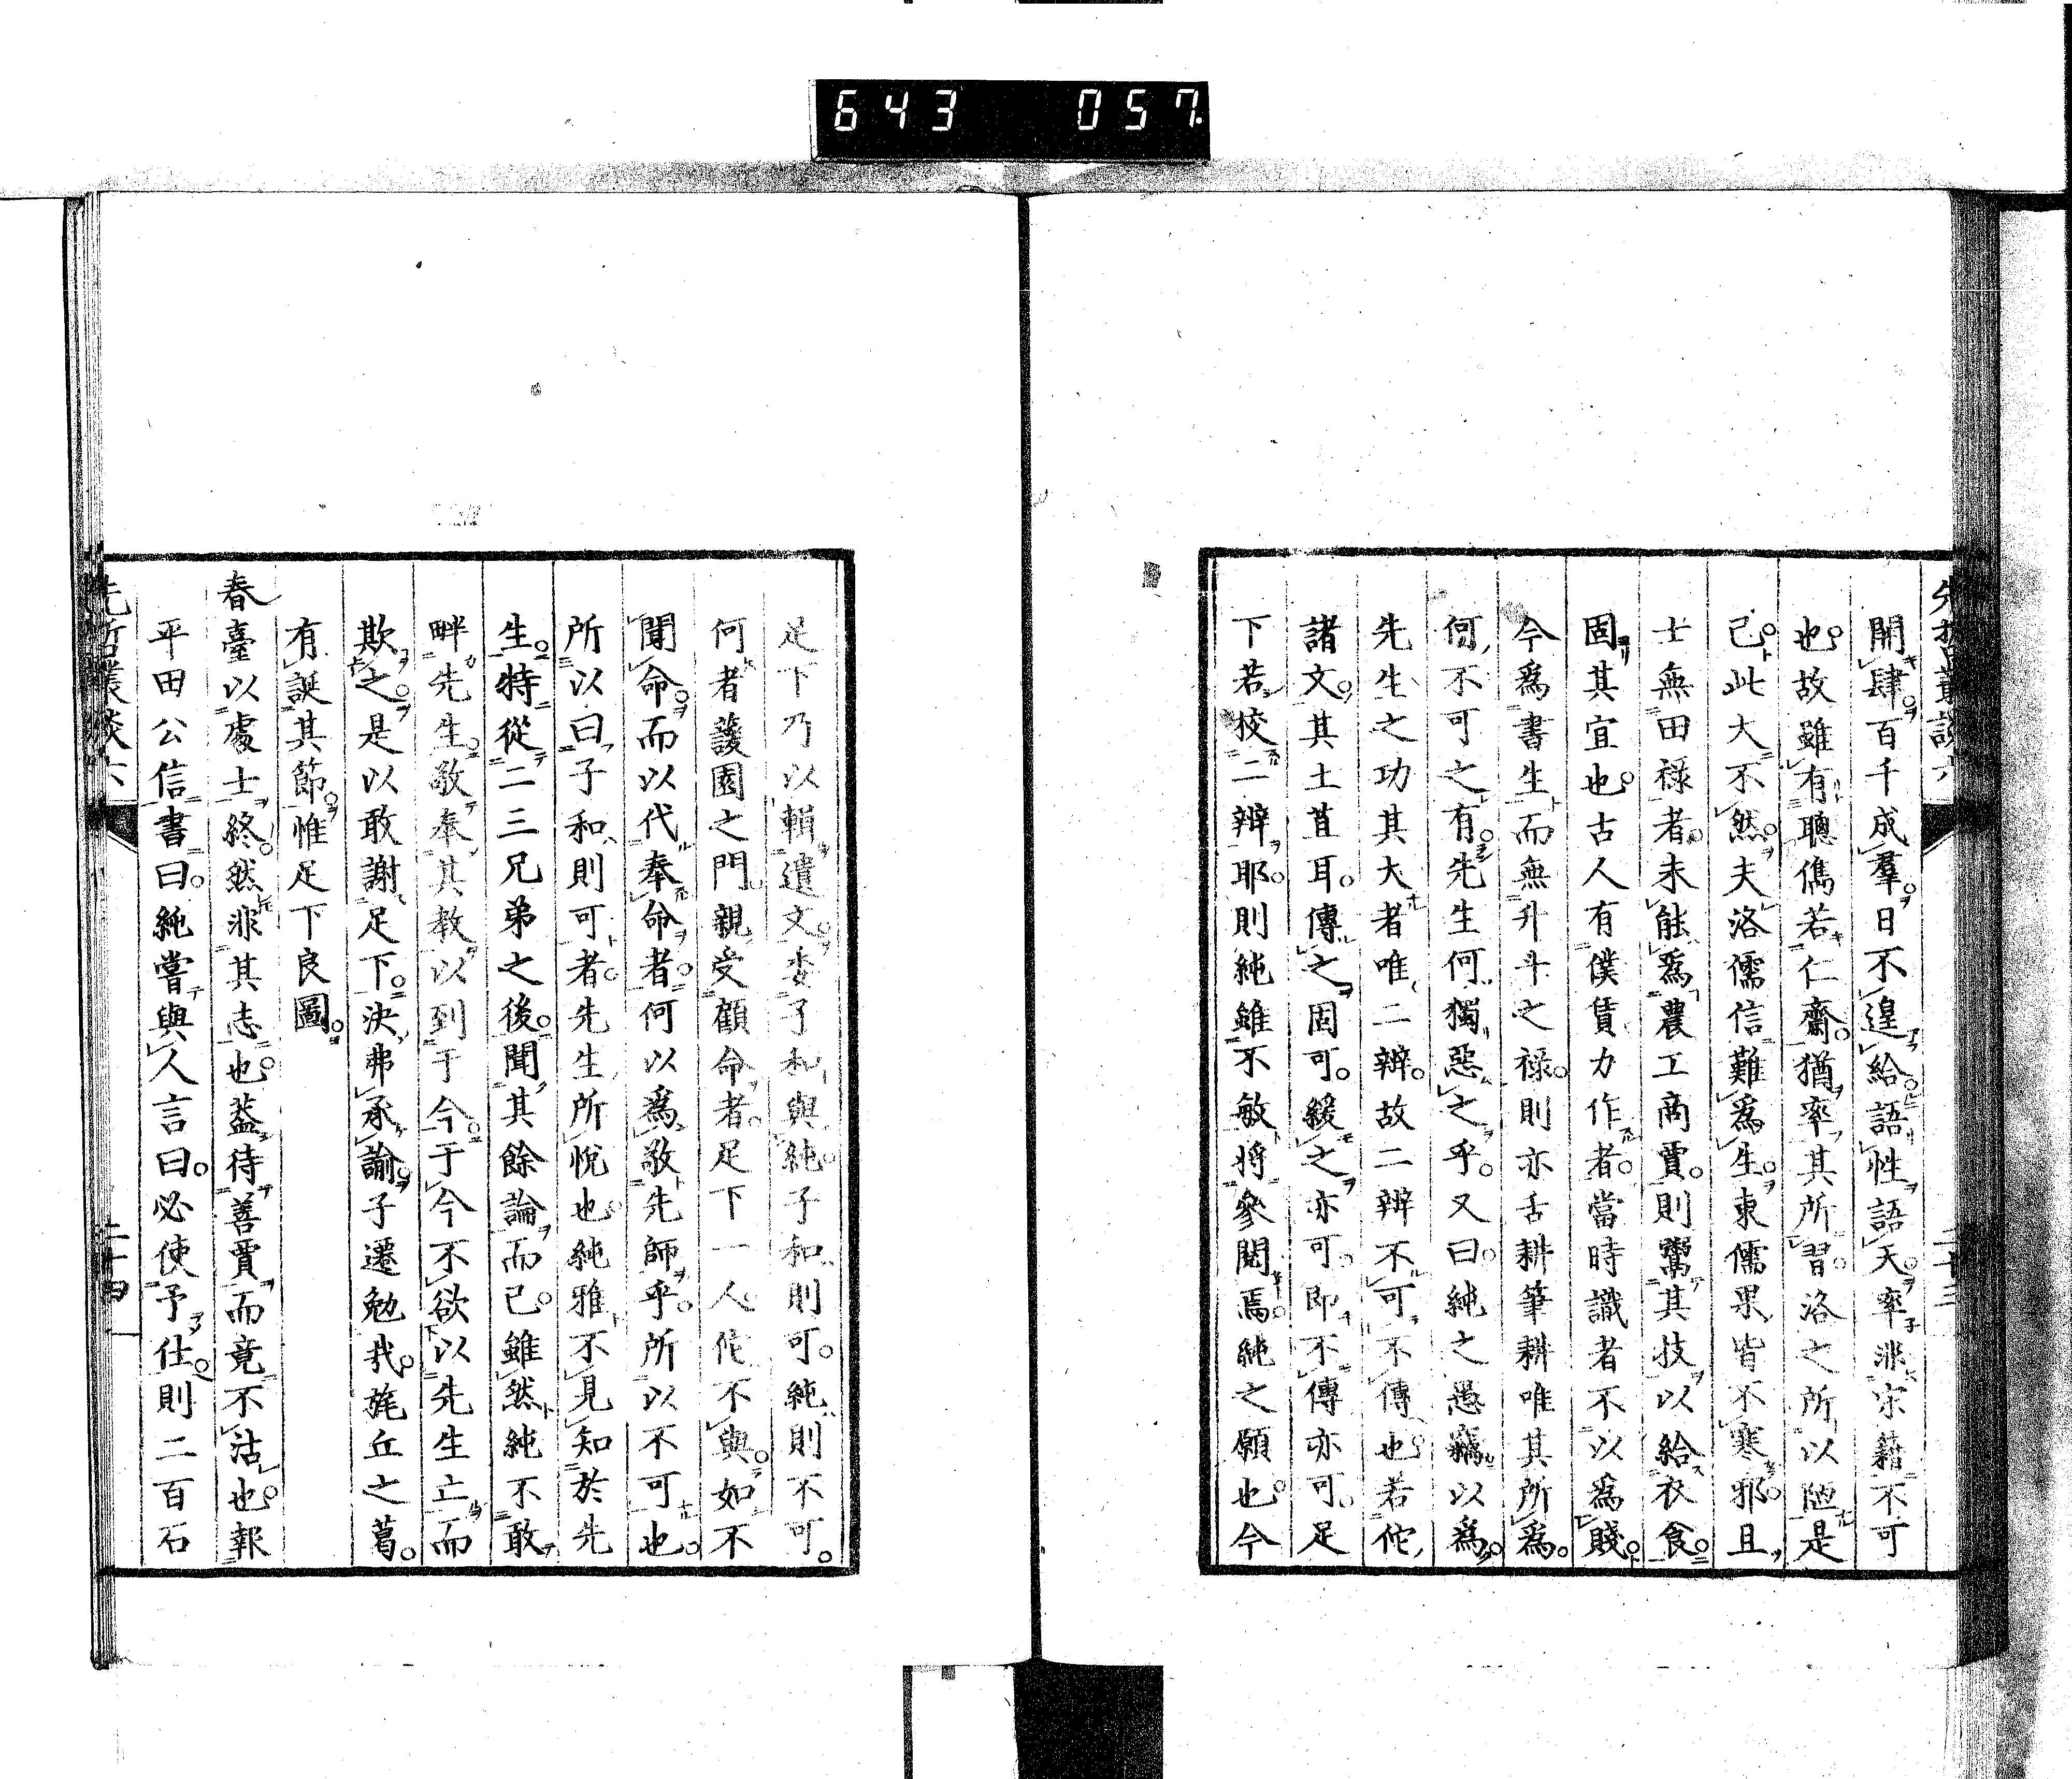 643 057
先哲叢談六
開肆百千成羣日不遑給語性語天率非宗籍不可
也故雖有聰儁若仁齋猶率其所習洛之所以陋是
已此大不然夫洛儒信難爲生東儒果皆不寒邪且
士無田祿者未能爲農工商賈則鬻其技以給衣食
固其宜也古人有僕賃力作者當時識者不以爲賤
今爲書生而無升斗之祿則亦舌耕筆耕唯其所爲
何不可之有先生何獨惡之乎又曰純之愚竊以爲
先生之功其大者唯二辨故二辨不可不傳也若佗
諸文其土苴耳傳之固可緩之亦可即不傳亦可足
下若校二辨耶則純雖不敏將參閱焉純之願也今
二十三
足下乃以輯遺文委子和與純子和則可純則不可
何者蘐園之門親受顧命者足下一人佗不與如不
聞命而以代奉命者何以爲敬先師乎所以不可也
所以曰子和則可者先生所悅也純雅不見知於先
生特從二三兄弟之後聞其餘論而已雖然純不敢
畔先生敬奉其教以到于今于今不欲以先生亡而
欺之是以敢謝足下決弗承諭子遷勉哉旄丘之葛
有誕其節惟足下良圖
春臺以處士終然非其志也蓋待善賈而竟不沽也報
平田公信書曰純嘗與人言曰必使予仕則二百石
先哲叢談六
二十四